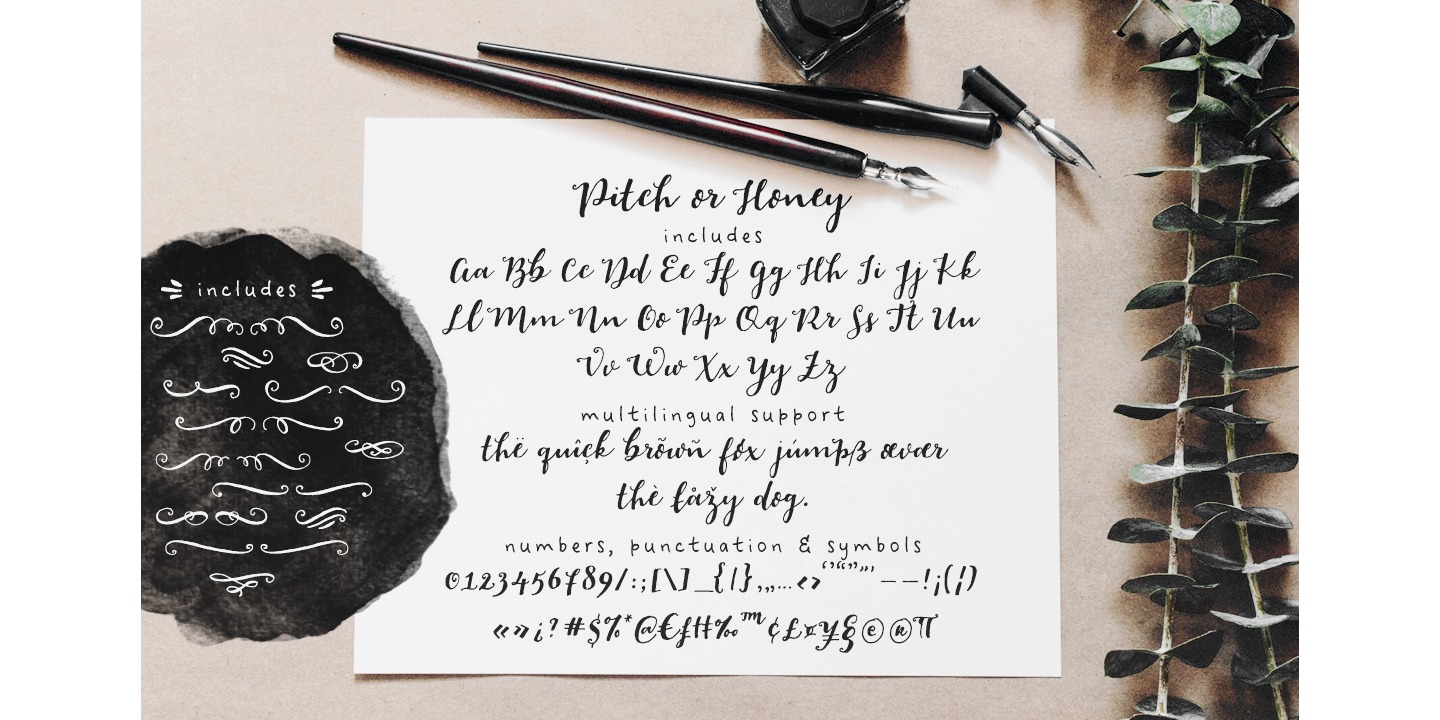 Pitch or Honey
includes
Aa Bb Cc Dd Ee Ff Gg Hh Ii Jj Kk
Ll Mm Nn Oo Pp Qq Rr Ss Tt Uu
Vv Ww Xx Yy Zz
multilingual support
thë quîçk brõwñ fóx júmþß œvær
thè łåžy dog.
numbers, punctuation & symbols
0123456789/:;[\]_{|}‚„…‹›‘’“”"'––!¡(¦)
«»¿?#$%*@€ƒ‰™¢£¤¥§©®π
includes